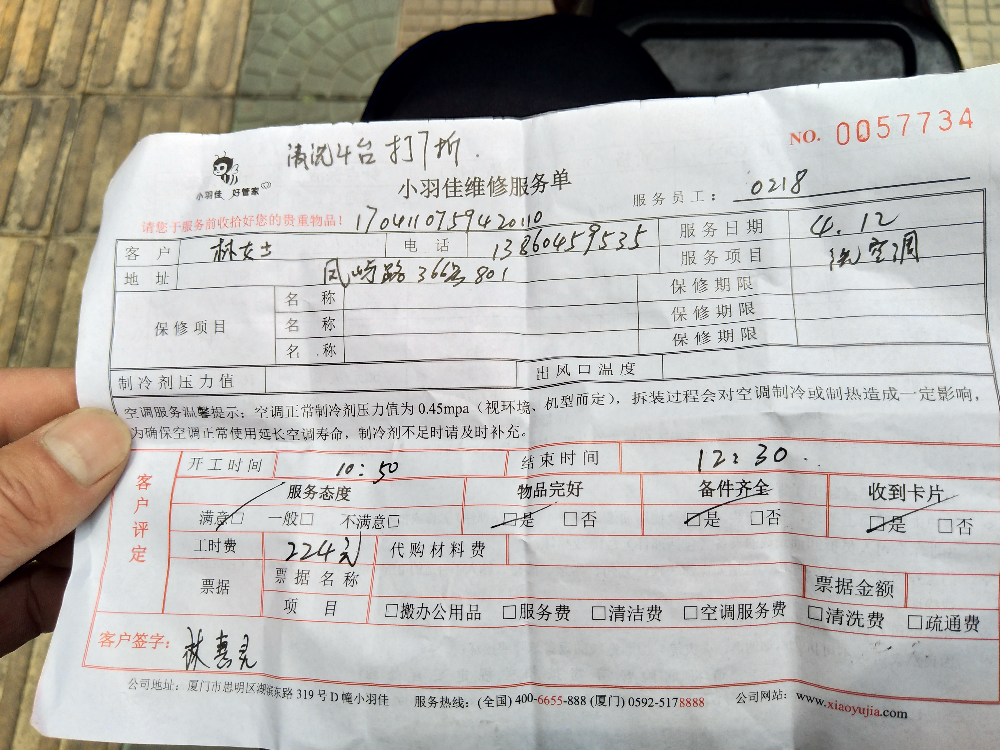 清洗4台打7折.
NO. 0057734
小羽佳 好管家
小羽佳维修服务单
服务员工: 0218
请您于服务前收拾好您的贵重物品! 170411075942010
客户 林女士 电话 13860459535 服务日期 4.12
地址 凤屿路366号801 服务项目 洗空调
保修项目 名称 保修期限
名称 保修期限
名称 保修期限
制冷剂压力值 出风口温度
空调服务温馨提示: 空调正常制冷剂压力值为 0.45mpa (视环境、机型而定), 拆装过程会对空调制冷或制热造成一定影响,
为确保空调正常使用延长空调寿命, 制冷剂不足时请及时补充。
客户评定 开工时间 10:50 结束时间 12:30
服务态度 物品完好 备件齐全 收到卡片
满意□ 一般□ 不满意□ □是 □否 □是 □否 □是 □否
工时费 224元 代购材料费
票据 票据名称 票据金额
项目 □搬办公用品 □服务费 □清洁费 □空调服务费 □清洗费 □疏通费
客户签字: 林喜
公司地址: 厦门市思明区湖滨东路 319 号 D 幢小羽佳 服务热线: (全国) 400-6655-888 (厦门) 0592-5178888 公司网站: www.xiaoyujia.com